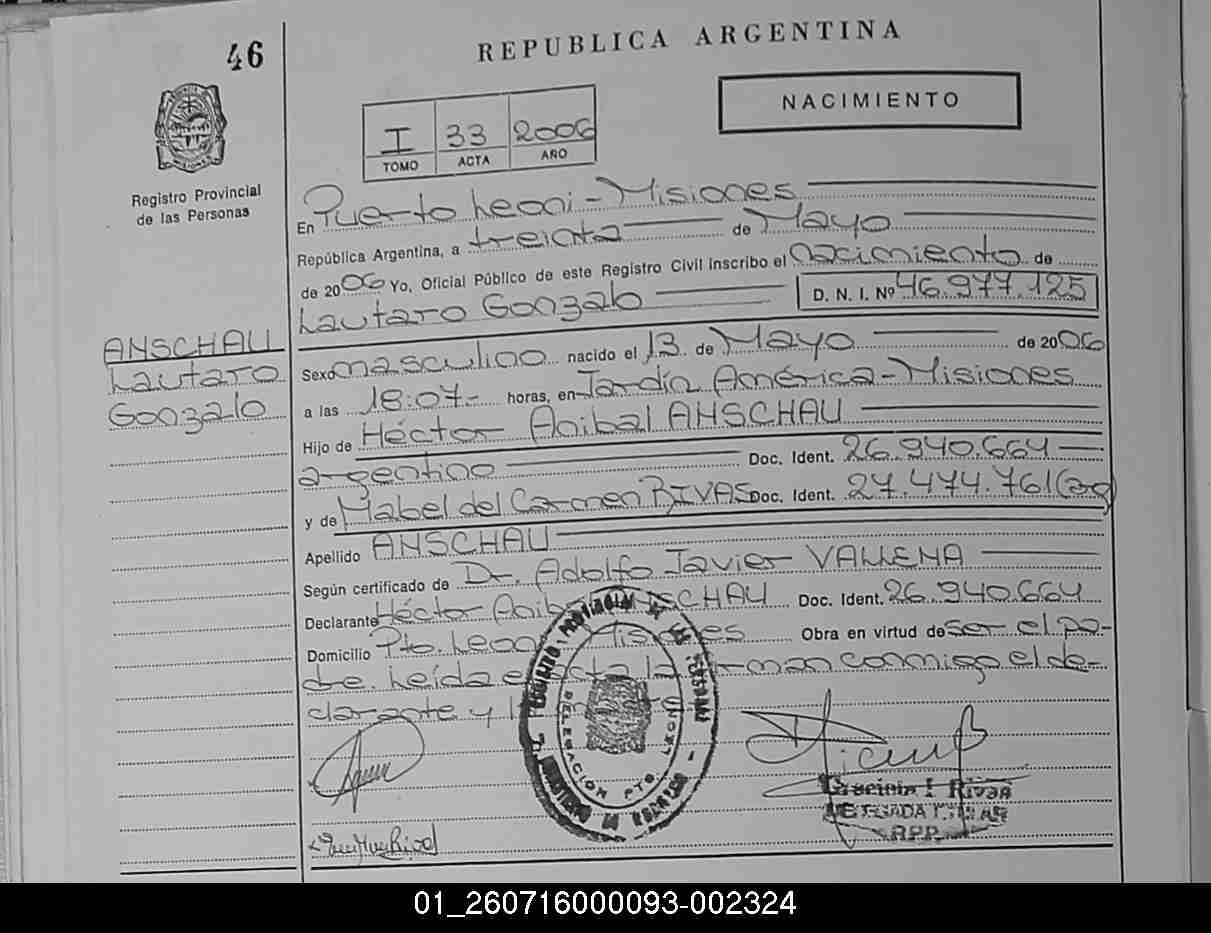 46
REPUBLICA ARGENTINA
NACIMIENTO
I 33 2006
TOMO ACTA AÑO
Registro Provincial
de las Personas
En Puerto Leoni - Misiones
República Argentina, a treinta de Mayo
de 2006 Yo, Oficial Público de este Registro Civil inscribo el nacimiento de
Lautaro Gonzalo D. N. I. Nº 46.977.125
ANSCHAU
Lautaro
Gonzalo
Sexo masculino nacido el 13 de Mayo de 2006
a las 18:07- horas, en Jardín América - Misiones
Hijo de Héctor Anibal ANSCHAU
argentino Doc. Ident. 26.940.664
y de Mabel del Carmen RIVAS Doc. Ident. 27.474.761 (arg)
Apellido ANSCHAU
Según certificado de Dr. Adolfo Javier
Declarante Héctor Anibal ANSCHAU Doc. Ident. 26.940.664
Domicilio Pto. Leoni Misiones Obra en virtud de ser el pa-
dre. Leída esta la firman conmigo el de-
clarante y
DELEGACION PTO. LEONI
Rivas
01_260716000093-002324